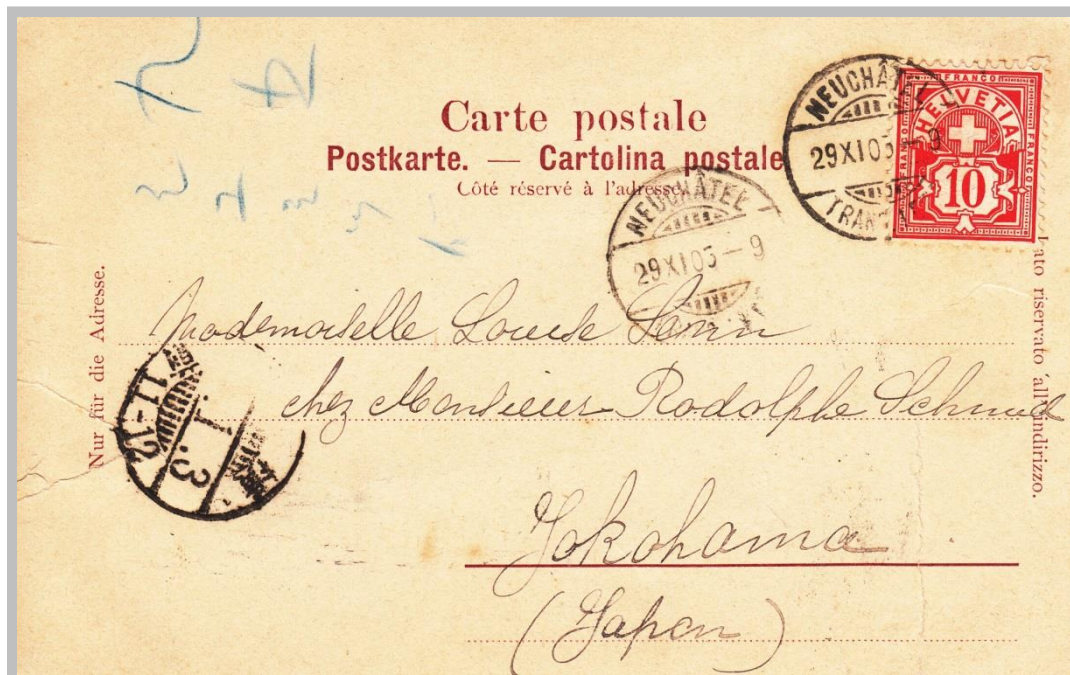 Carte postale
Postkarte. — Cartolina postale
Côté réservé à l'adresse.
NEUCHÂTEL
29 XI 05 – 9
TRAN
FRANCO
HELVETIA
FRANCO
FRANCO
10
NEUCHÂTEL
29 XI 05 – 9
Nur für die Adresse.
Lato riservato all'indirizzo.
Mademoiselle Louise
chez Monsieur Rodolphe Schmid
Yokohama
(Japon)
11-12
.1.3